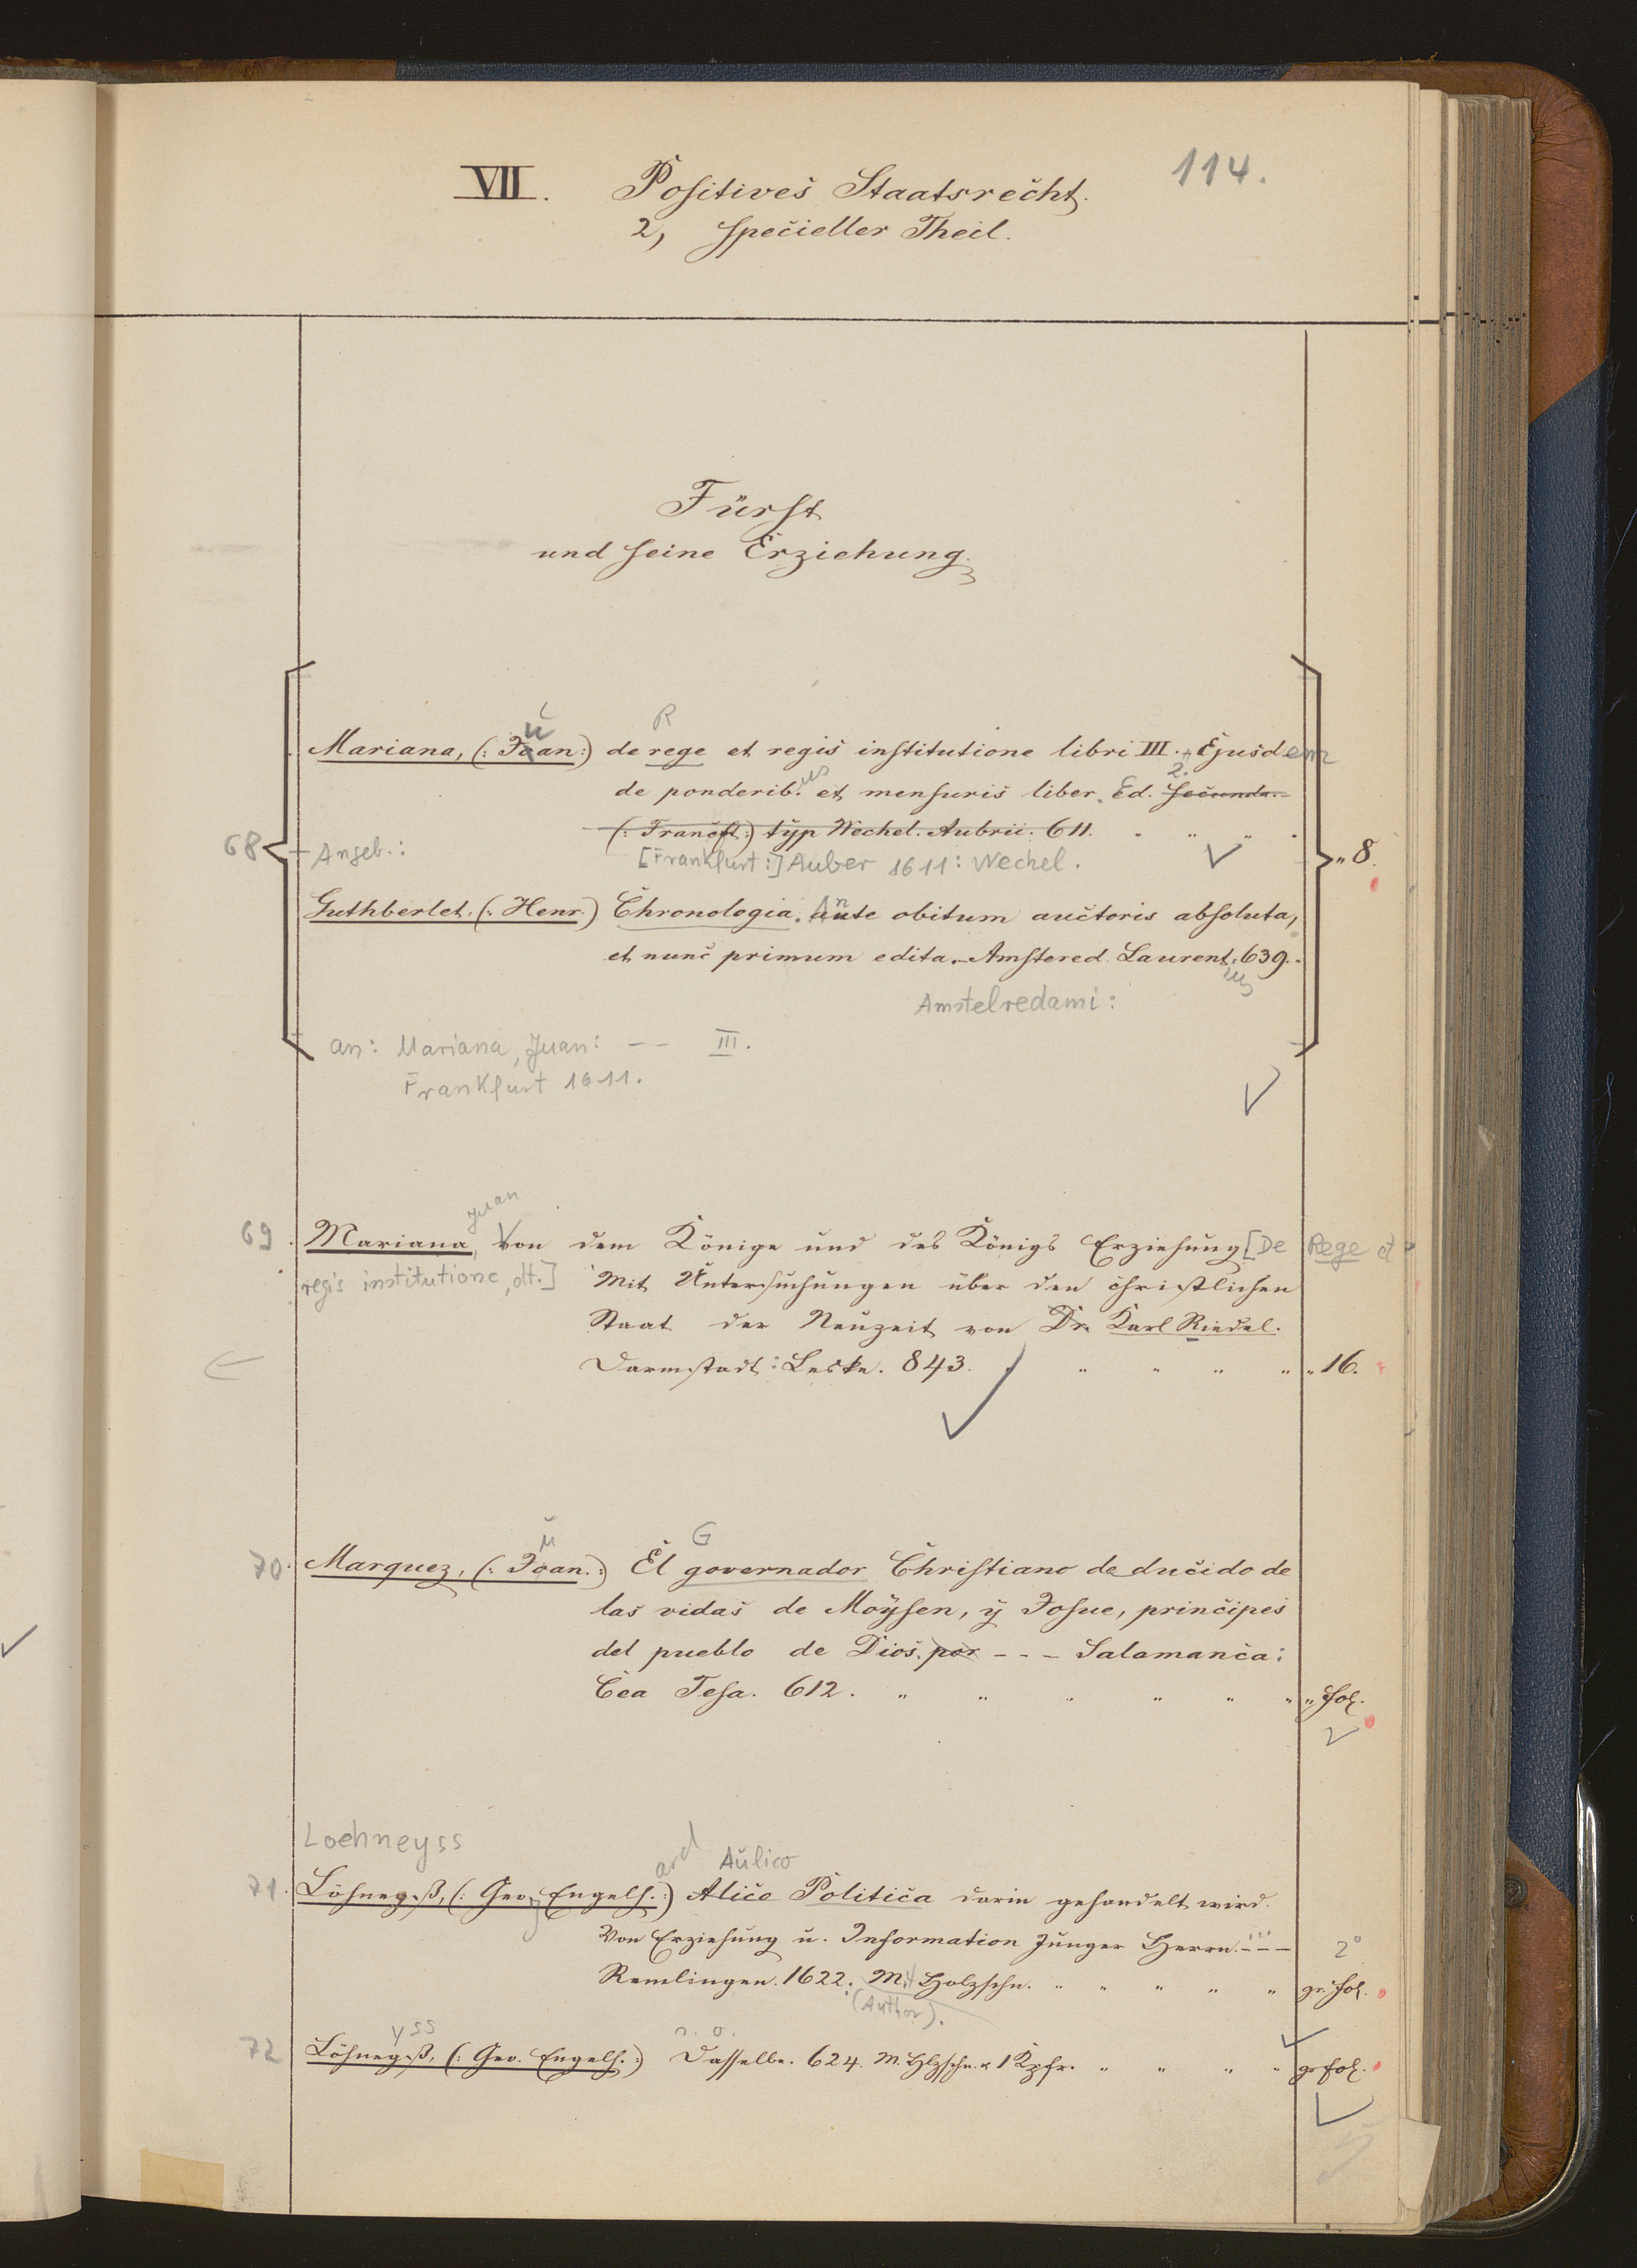 114.
VII. Positives Staatsrecht.
2, specieller Theil.
Fürst
und seine Erziehung.
u R
Mariana, (: Joan:) de rege et regis institutione libri III. + Ejusdem
us 2.
de ponderib. et mensuris liber. Ed. secunda.
(: Francft:) typ Wechel. Aubrii. 611. " " "
68 + Angeb.: [Frankfurt:] Auber 1611: Wechel. " 8.
Guthberlet, (: Henr.) Chronologia. Ante obitum auctoris absoluta,
et nunc primum edita. - Amstered. Laurent. 639.
us
Amstelredami:
an: Mariana, Juan: — — III.
Frankfurt 1611.
Juan
69. Mariana, Von dem Könige und des Königs Erziehung [De Rege et
regis institutione, dt.] Mit Untersuchungen über den christlichen
Staat der Neuzeit von Dr. Karl Riedel.
Darmstadt: Leske. 843. " " " " " 16.
u G
70. Marquez, (: Joan.:) El governador Christiano deducido de
las vidas de Moÿsen, ÿ Josue, principes
del pueblo de Dios. por - - - Salamanca:
Cea Tesa. 612. " " " " " " " fol.
2
Loehneyss
ard Aulico
71. Löhneyß, (: Geo. Engelh.:) Alico Politica darin gehandelt wird.
Von Erziehung u. Information Junger Herrn. - - - 2°
Remlingen. 1622. Mit Holzschn. " " " " " gr. fol.
(Author).
yss o. O.
72 Löhneyß, (: Geo. Engelh.:) Dasselbe. 624. M. Hlzschn. & 1 Kpfr. " " " " gr fol.